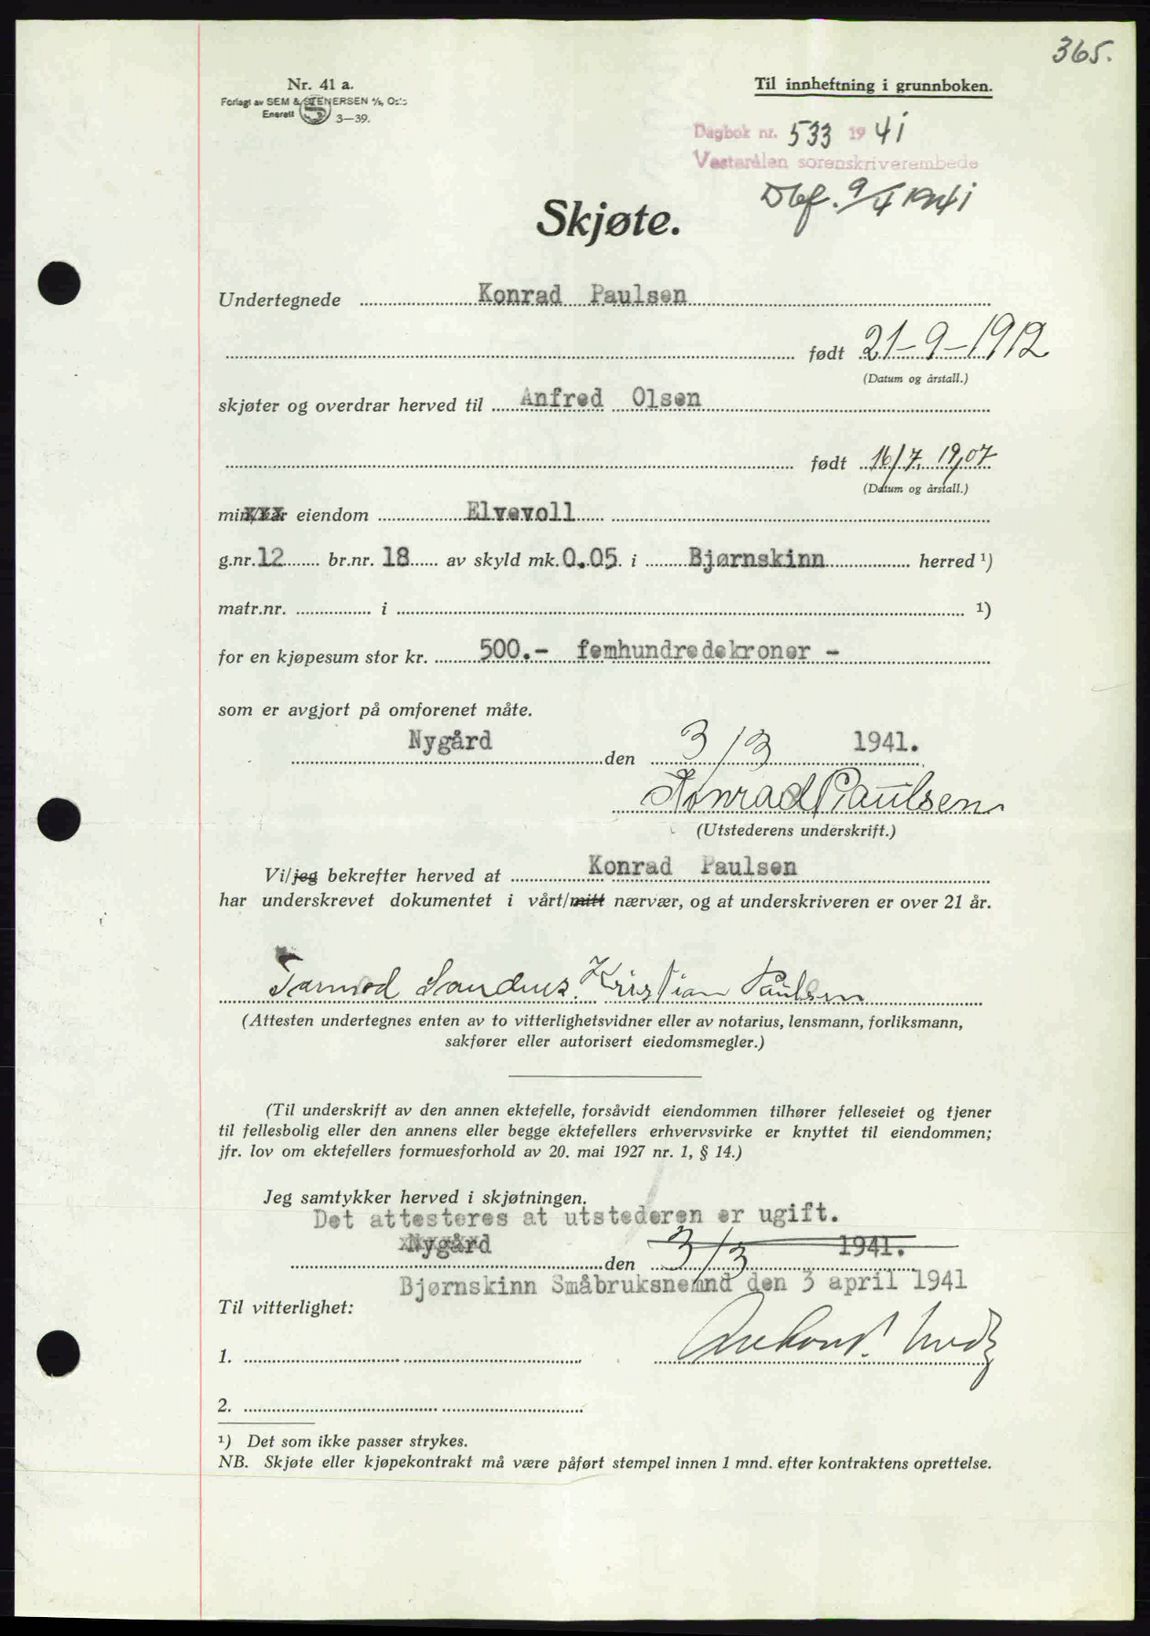 365.
Nr. 41 a.
Forlagt av SEM & STENERSEN A/S, Oslo
Enerett 3—39.
Til innheftning i grunnboken.
Dagbok nr. 533 1941
Vesterålen sorenskriverembede
Dbf. 9/4 1941
Skjøte.
Undertegnede Konrad Paulsen
født 21-9-1912
(Datum og årstall.)
skjøter og overdrar herved til Anfred Olsen
født 16/7. 1907
(Datum og årstall.)
min/vår eiendom Elvevoll
g.nr. 12 br.nr. 18 av skyld mk. 0.05. i Bjørnskinn herred ¹)
matr.nr. i ¹)
for en kjøpesum stor kr. 500.- femhundredekroner -
som er avgjort på omforenet måte.
Nygård den 3/3 1941.
Konrad Paulsen
(Utstederens underskrift.)
Vi/jeg bekrefter herved at Konrad Paulsen
har underskrevet dokumentet i vårt/mitt nærvær, og at underskriveren er over 21 år.
Kristian Paulsen
(Attesten undertegnes enten av to vitterlighetsvidner eller av notarius, lensmann, forliksmann,
sakfører eller autorisert eiedomsmegler.)
(Til underskrift av den annen ektefelle, forsåvidt eiendommen tilhører felleseiet og tjener
til fellesbolig eller den annens eller begge ektefellers erhvervsvirke er knyttet til eiendommen;
jfr. lov om ektefellers formuesforhold av 20. mai 1927 nr. 1, § 14.)
Jeg samtykker herved i skjøtningen.
Det attesteres at utstederen er ugift.
Nygård den 3/3 1941.
Bjørnskinn Småbruksnemnd den 3 april 1941
Til vitterlighet:
1.
2.
¹) Det som ikke passer strykes.
NB. Skjøte eller kjøpekontrakt må være påført stempel innen 1 mnd. efter kontraktens oprettelse.